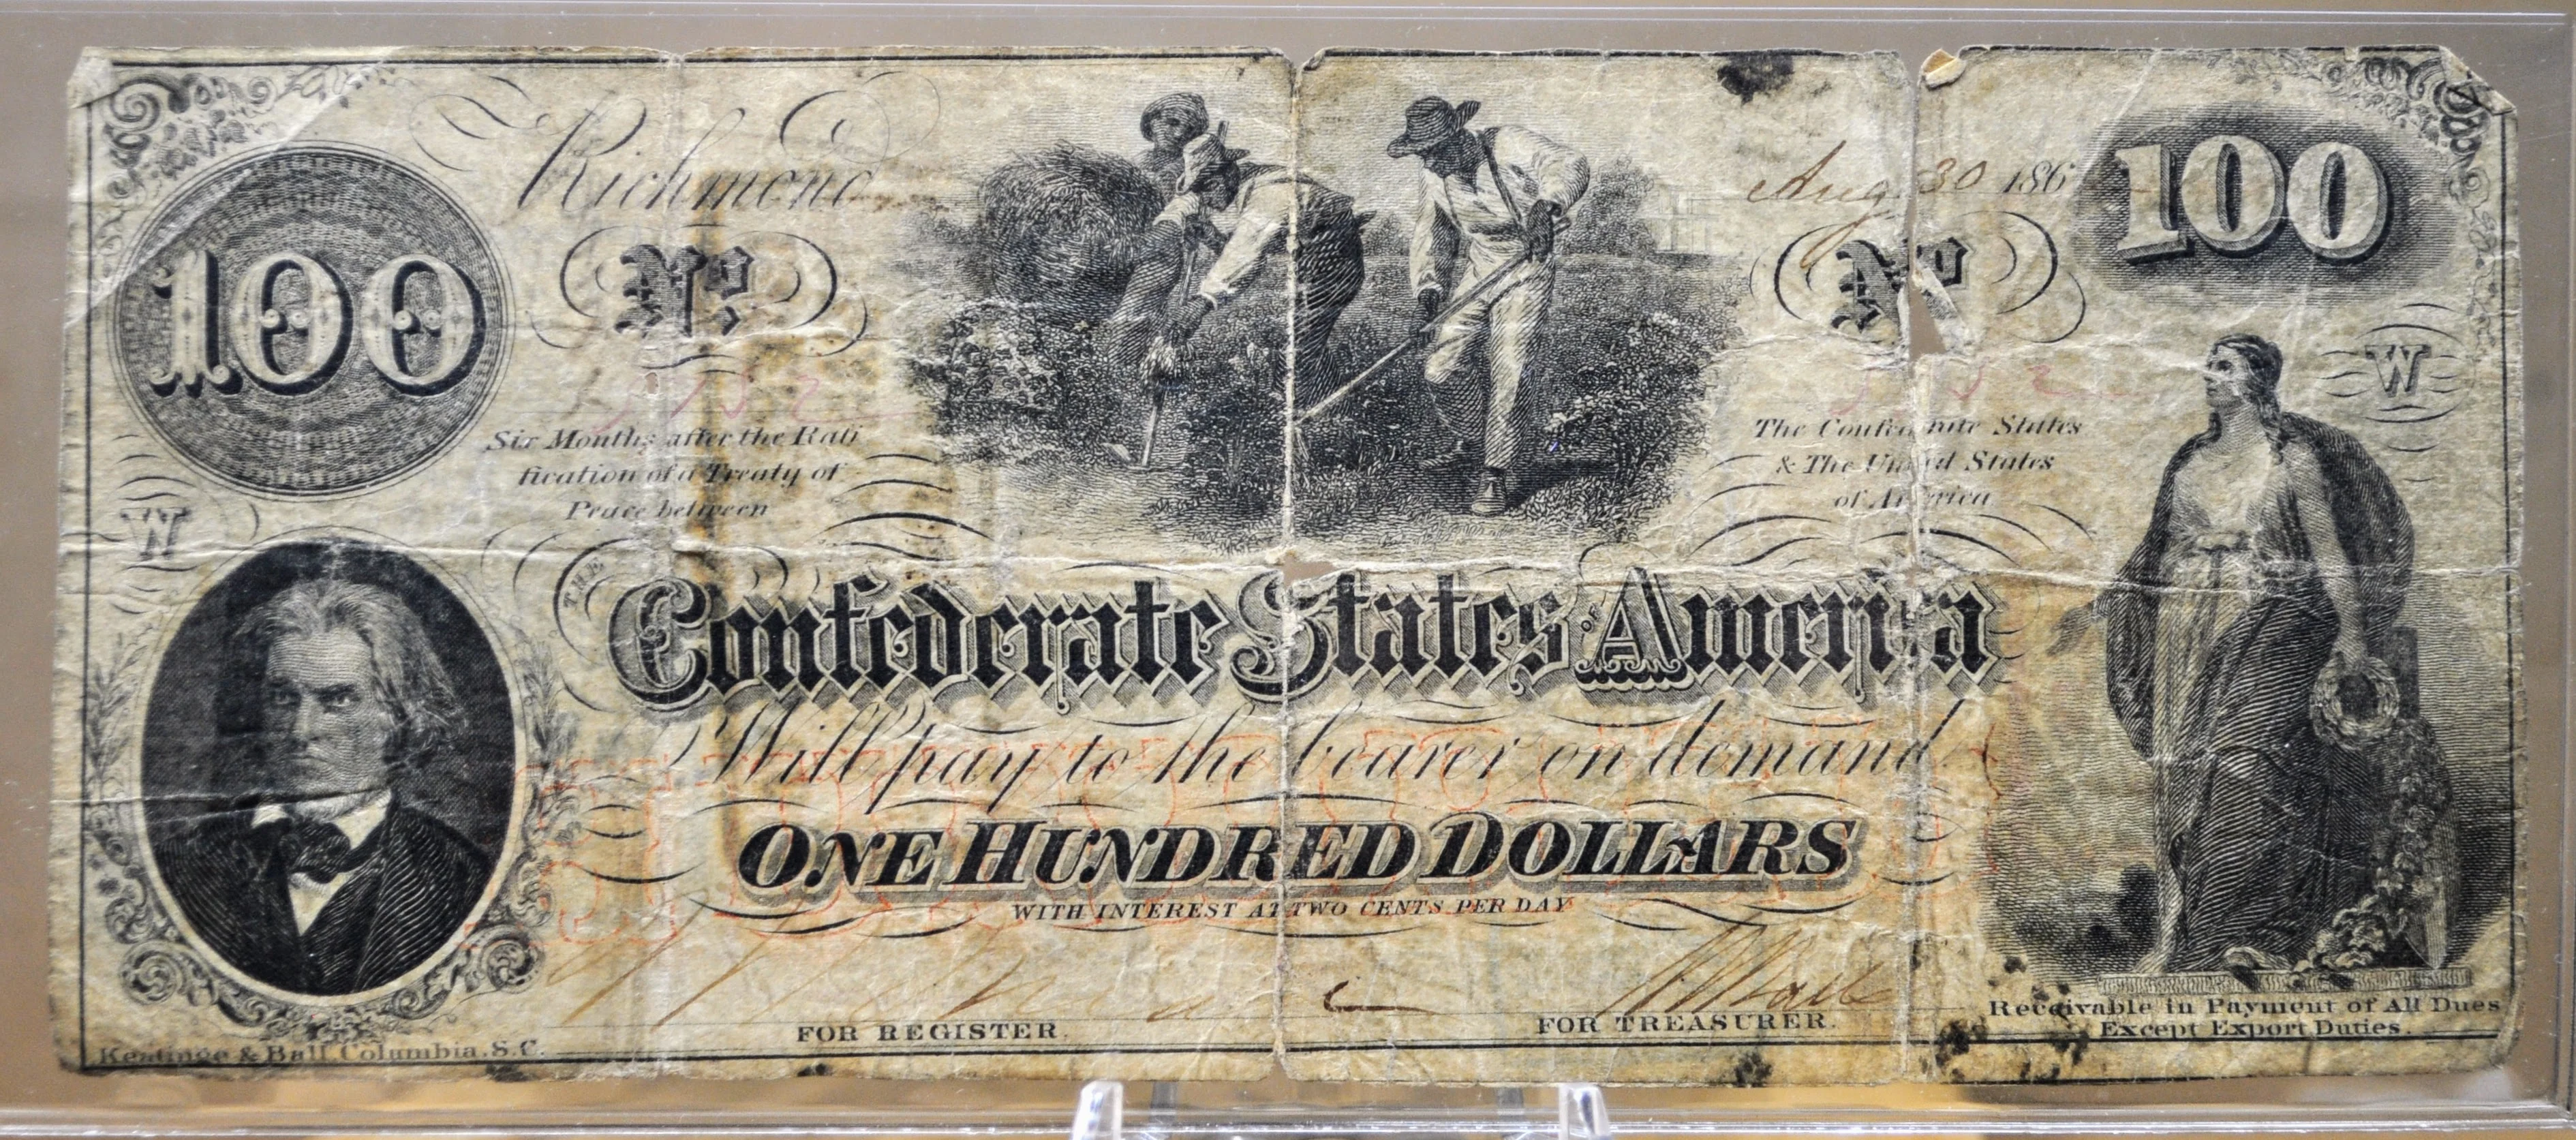 Richmond
Aug 30 186
100
100
No.
No
W
Six Months after the Rati
fication of a Treaty of
Peace between
The Confederate States
& The United States
of America
W
THE
Confederate States OF America
Will pay to the bearer on demand
ONE HUNDRED DOLLARS
WITH INTEREST AT TWO CENTS PER DAY
FOR REGISTER.
FOR TREASURER.
Receivable in Payment of All Dues
Except Export Duties.
Keatinge & Ball, Columbia, S.C.